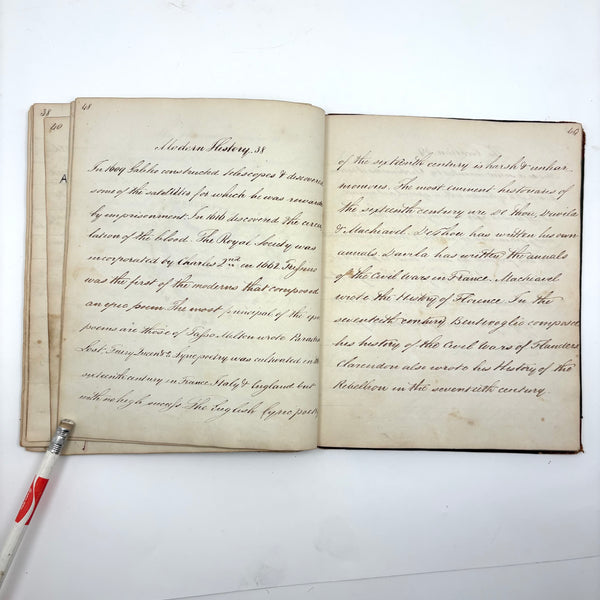 38
40
A
48
Modern History. 38
In 1609 Galileo constructed telescopes & discovered
some of the satellites for which he was rewarded
by imprisonment. In 1616 discovered the circu
lation of the blood. The Royal Society was
incorporated by Charles 2nd in 1662
was the first of the moderns that composed
an epic poem. The most principal of the epic
poems are those of Tasso Milton wrote Paradise
Lost. Fairy Queen & Lyric poetry was cultivated in the
sixteenth century in France Italy & England but
with no high success The English Lyric poetry
49
of the sixteenth century is harsh & unhar
monious. The most eminent historians of
the sixteenth century are De Thou, Davila
& Machiavel. De Thou has written his own
annals. Davila has written the annals
of the Civil Wars in France. Machiavel
wrote the History of Florence. In the
seventeenth century Bentivoglio composed
his history of the Civil Wars of Flanders
Clarendon also wrote his History of the
Rebellion in the seventeenth century.